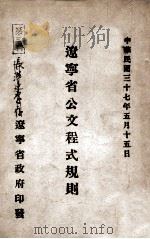 中華民國三十七年五月十五日
遼寧省公文程式規則
遼寧省政府印發